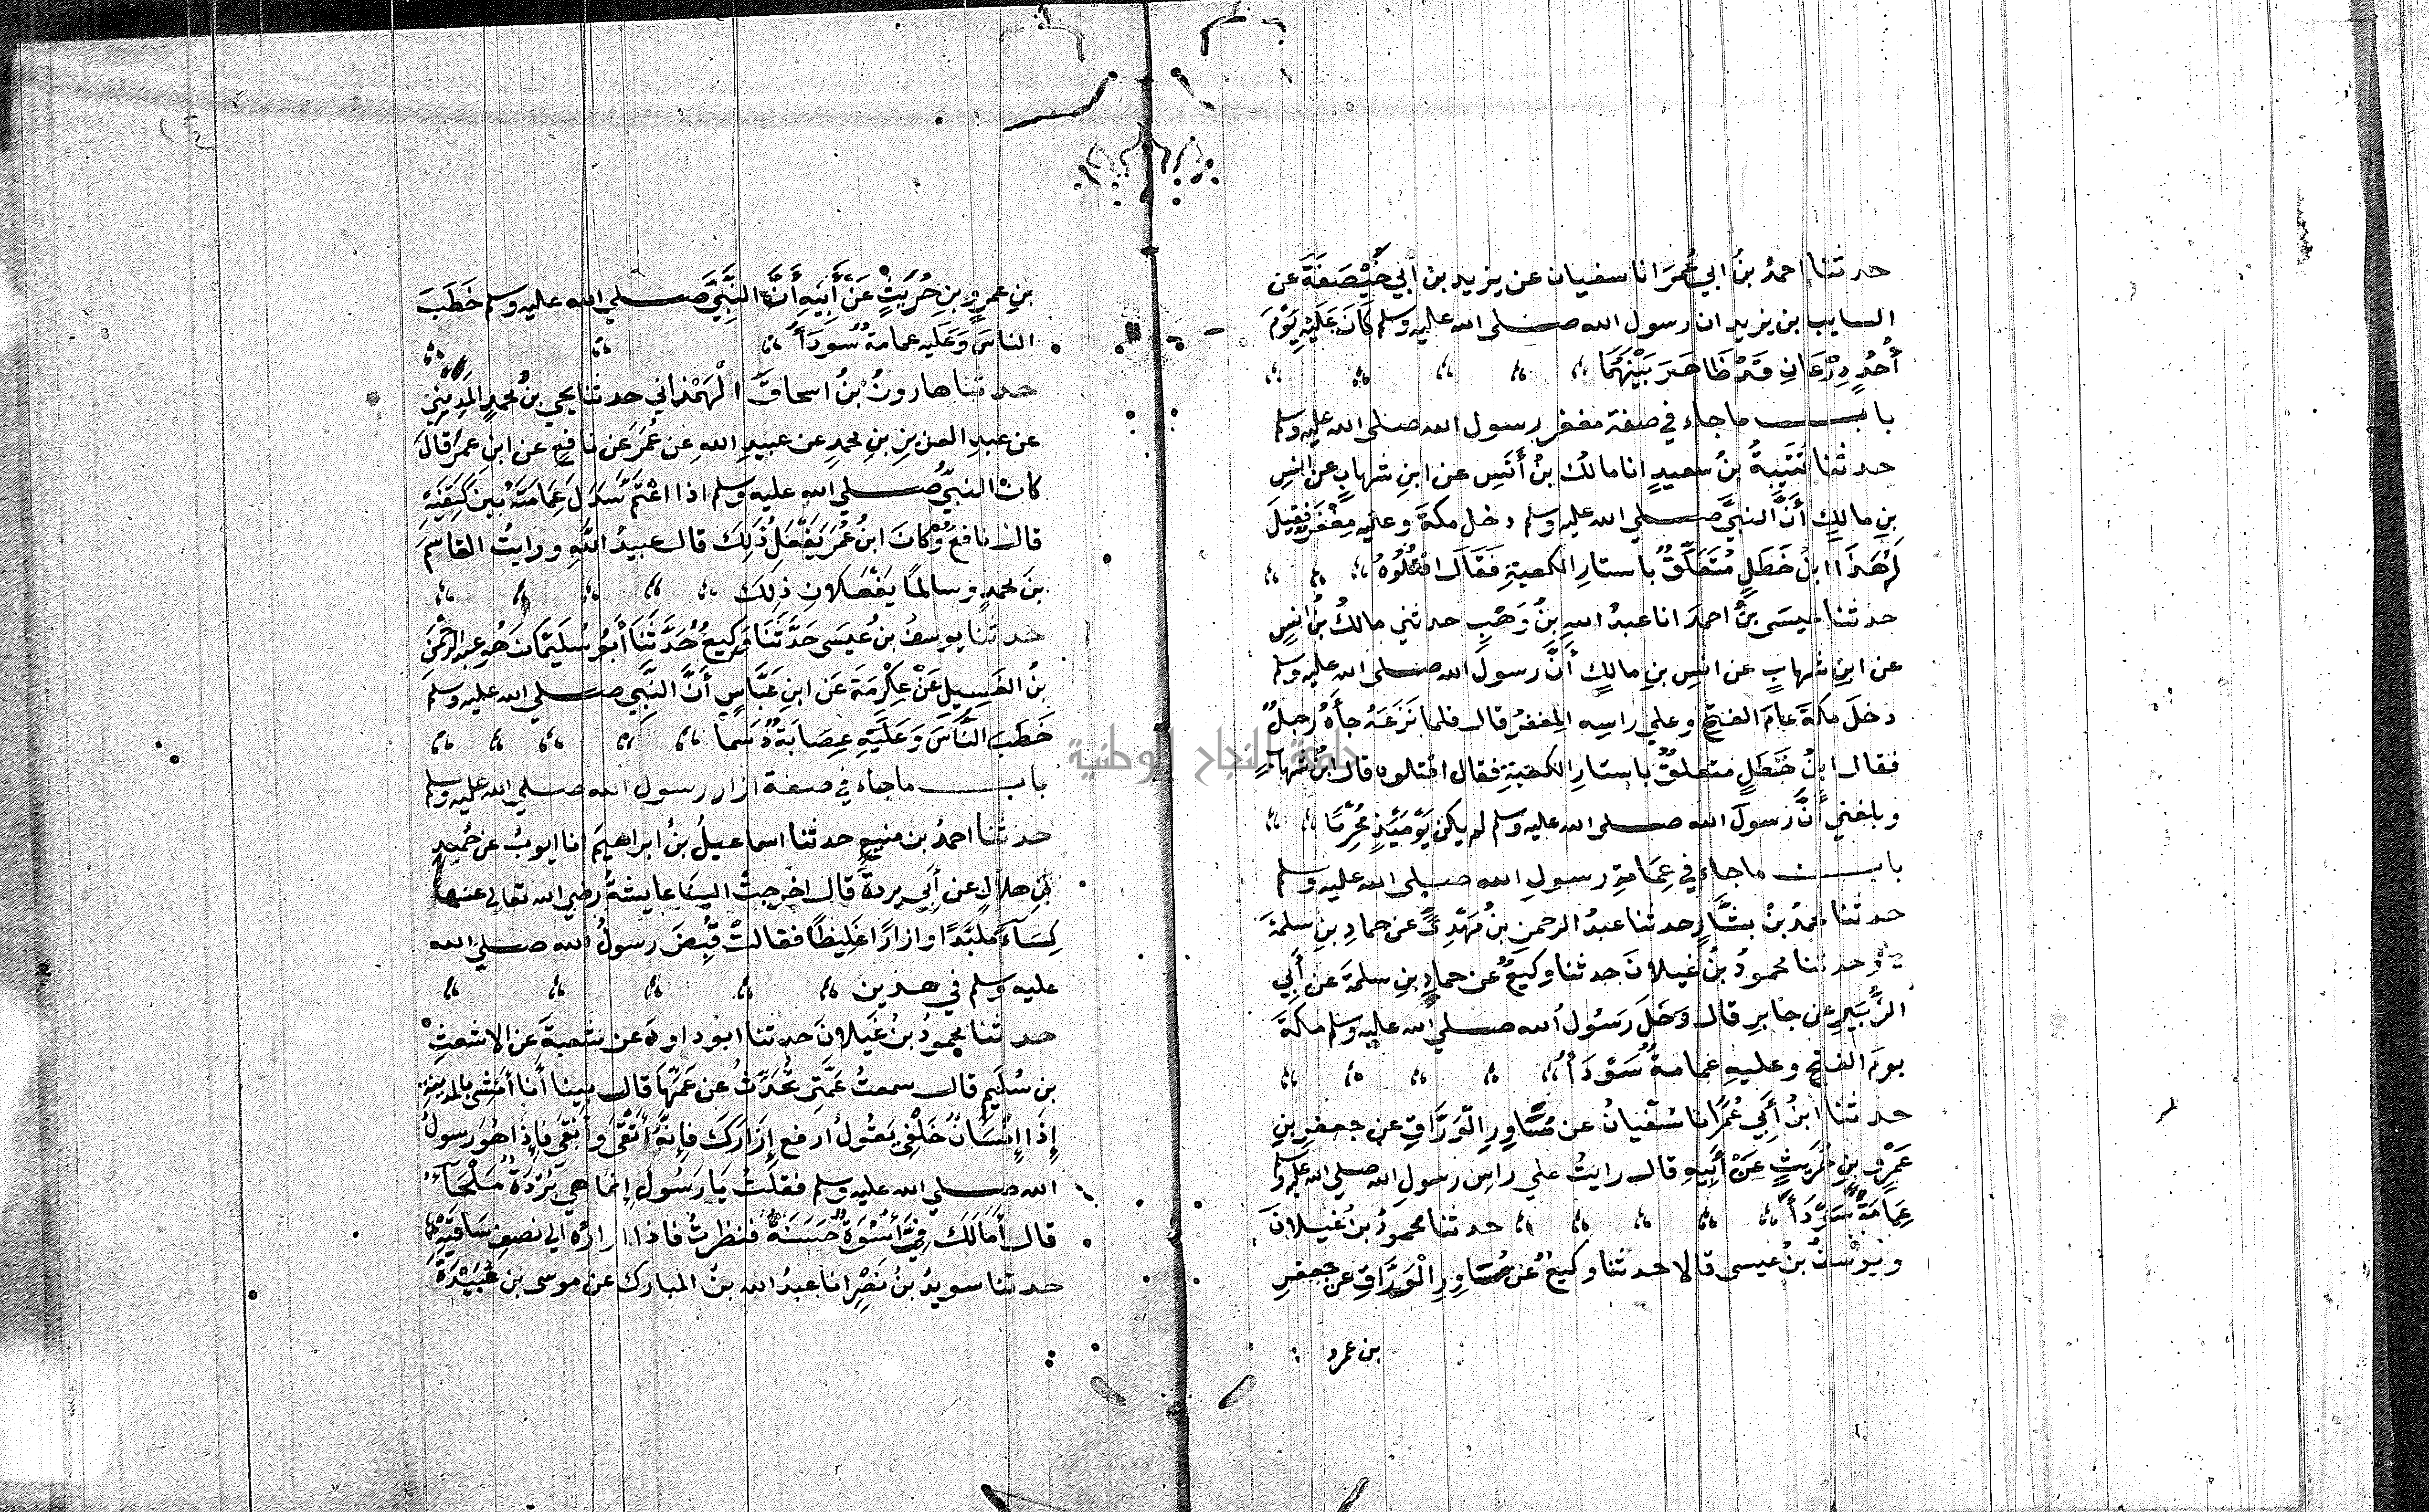 حدثنا احمدُ بنُ ابي عُمَرَ انا سفيان عن يزيد بن ابي خُصَيْفَةَ عن
السايب بن يزيد ان رسول الله صلى الله عليه وسلم كَانَ عَلَيْهِ يَوْمَ
أُحُدٍ دِرْعَانِ قَدْ ظَاهَرَ بَيْنَهُمَا
باب ما جاء في صفة مغفر رسول الله صلى الله عليه وسلم
حدثنا قُتَيبةُ بنُ سعيدٍ انا مالكُ بنُ أَنَسٍ عن ابنِ شهابٍ عن انسِ
بنِ مالكٍ أَنَّ النبيَّ صلي الله عليه وسلم دخل مكةَ وعليه مِغْفَرٌ فقِيلَ
لَه هَذَا ابنُ خَطَلٍ مُتَعَلِّقٌ باستارِ الكعبةِ فَقَالَ اقْتُلُوهُ
حدثنا عيسَى بنُ احمدَ انا عبدُ اللهِ بنُ وَهْبٍ حدثني مالكُ بنُ انسٍ
عن ابنِ شهابٍ عن انسِ بنِ مالكٍ أَنَّ رسولَ الله صلى الله عليه وسلم
دخلَ مكةَ عامَ الفتحِ وعلي راسِه المغفرُ قال فلما نَزَعَهُ جأَهُ رجلٌ
فقال ابنُ خَطَلٍ متعلقٌ باستارِ الكعبةِ فقال اقتلوه قال ابنُ شهابٍ
وبلغني أَنَّ رسولَ الله صلى الله عليه وسلم لم يكن يَوْمَئِذٍ مُحْرِمًا
باب ما جاء في عِمَامَةِ رسولِ الله صلى الله عليه وسلم
حدثنا محمدُ بنُ بشَّارٍ حدثنا عبدُ الرحمنِ بنُ مَهْدِيٍّ عن حمادِ بنِ سلمةَ
ح وحدثنا محمودُ بنُ غيلانَ حدثنا وكيعٌ عن حمادِ بنِ سلمةَ عن أَبي
الزُّبَيرِ عن جابرٍ قال دَخَلَ رَسُولُ الله صلي الله عليه وسلم مكةَ
يومَ الفتحِ وعليهِ عمامةٌ سَوْدَأُ
حدثنا ابنُ أَبي عُمَرَ انا سُفْيانُ عن مُسَاوِرِ الْوَرَّاقِ عن جعفرِ بنِ
عَمْرِو بنِ حُرَيثٍ عَنْ أَبِيهِ قال رايتُ علي راسِ رسولِ الله صلى الله عليه وسلم
عِمَامَةً سَوْدَأَ حدثنا محمودُ بنُ غيلانَ
ويُوْسُفُ بنُ عيسى قالا حدثنا وكيعٌ عن مُسَاوِرِ الْوَرَّاقِ عن جعفرِ
بن عمرو
بنِ عمرِو بنِ حُرَيثٍ عَنْ أَبِيهِ أَنَّ النَّبِيَّ صلي الله عليه وسلم خَطَبَ
الناسَ وَعَلَيه عمامةٌ سُودَأُ
حدثنا هارونُ بنُ اسحاقَ الْهَمْدَاني حدثنا يحيي بنُ محمدٍ المَدِيني
عن عبدِ العزيزِ بنِ محمدٍ عن عبيدِ اللهِ عن عُمَرَ عن نافعٍ عن ابنِ عمَرَ قال
كان النبيُّ صلي الله عليه وسلم اذا اعْتَمَّ سَدَلَ عِمَامَتَهُ بين كَتِفَيْهِ
قال نافعٌ وَكَانَ ابنُ عُمَرَ يَفْعَلُ ذَلِكَ قال عبيدُ اللَّهِ ورايتُ القاسِمَ
بنَ محمدٍ وسالمًا يَفْعَلانِ ذلِكَ
حدثنا يوسفُ بنُ عيسَى حَدَّثَنَا وَكِيعٌ حَدَّثَنَا أَبُو سُلَيمَانَ هو عبدُ الرحمنِ
بنُ الغَسِيلِ عَنْ عِكْرِمَةَ عَن ابنِ عَبَّاسٍ أَنَّ النَّبِي صلي الله عليه وسلم
خَطَبَ النَّاسَ وَعَلَيْهِ عِصَابَةٌ دَسْما
باب ما جاء في صفة ازار رسول الله صلي الله عليه وسلم
حدثنا احمدُ بن منيعٍ حدثنا اسماعيلُ بنُ ابراهيمَ انا ايوبُ عن حُميدِ
بنِ هلالٍ عن أَبي بردةَ قال اخرجتْ الينَا عايشةُ رضي الله تعالي عنها
كِسَاءً مُلَبَّدًا وازارًا غَلِيظًا فقالتْ قُبِضَ رسولُ الله صلي الله
عليه وسلم في هذين
حدثنا محمودُ بنُ غَيلانَ حدثنا ابو داودَ عن شعبةَ عن الاشعثِ
بن سُلَيمٍ قال سمعتُ عَمَّتِي تُحَدِّثُ عن عَمِّهَا قال بينا أَنا أَمْشِي بالمدينةِ
إِذَا إِنْسَانٌ خَلْفِي يَقُولُ ارفع إِزَارَكَ فَإِنَّهُ أَتْقَى وَأَبْقَى فَإِذَا هُوَ رسولُ
الله صلي الله عليه وسلم فقلتُ يَا رَسُولَ إِنما هي بُرْدَةٌ مَلْحَآءُ
قال أَمَا لَكَ فِيَّ أُسْوَةٌ حَسَنَةٌ فنظرتُ فاذا ازارُه الي نصفِ سَاقَيْهِ
حدثنا سويدُ بنُ نَصْرٍ انا عبدُ الله بنُ المبارك عن موسى بن عُبَيْدَةَ
جامعة النجاح الوطنية